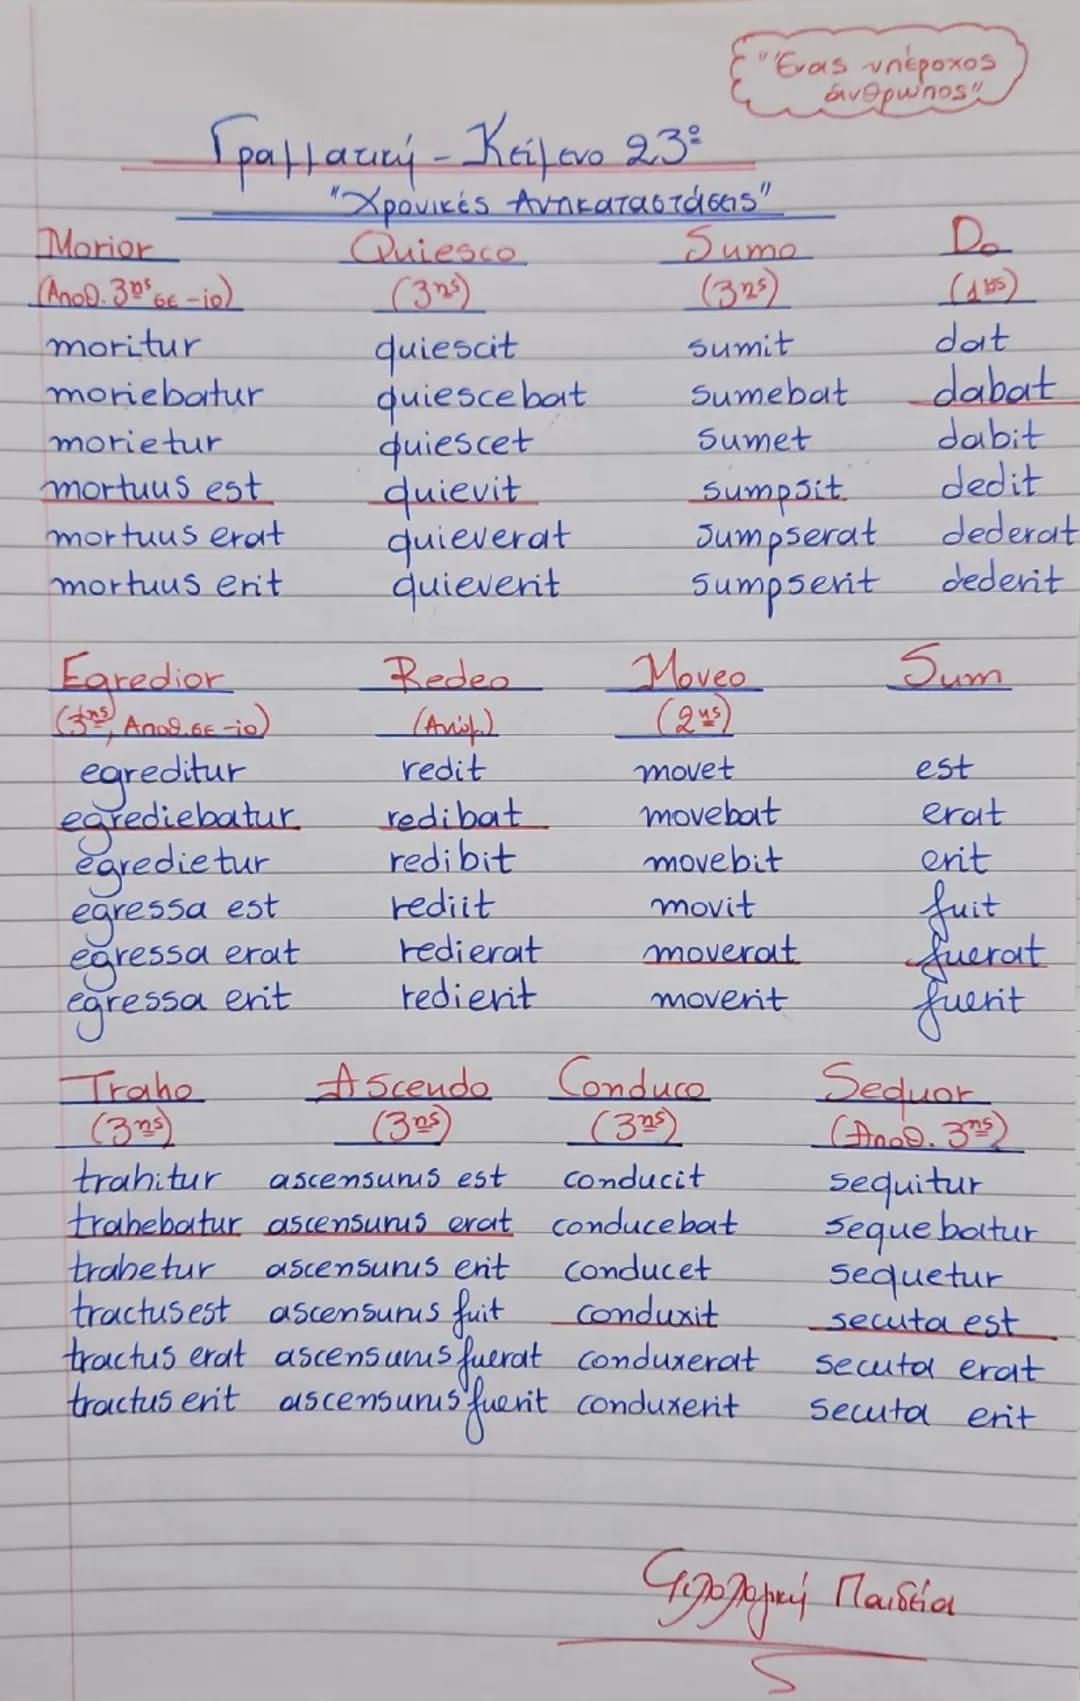 "Ένας υπέροχος
άνθρωπος"
Γραμματική - Κείμενο 23º
"Χρονικές Αντικαταστάσεις"
Morior Quiesco Sumo Do
(Αποθ. 3ης σε -io) (3ης) (3ης) (1ης)
moritur quiescit sumit dat
moriebatur quiescebat sumebat dabat
morietur quiescet sumet dabit
mortuus est quievit sumpsit dedit
mortuus erat quieverat sumpserat dederat
mortuus erit quieverit sumpserit dederit
Egredior Redeo Moveo Sum
(3ης, Αποθ. σε -io) (Ανώμ.) (2ης)
egreditur redit movet est
egrediebatur redibat movebat erat
egredietur redibit movebit erit
egressa est rediit movit fuit
egressa erat redierat moverat fuerat
egressa erit redierit moverit fuerit
Traho Ascendo Conduco Sequor
(3ης) (3ης) (3ης) (Αποθ. 3ης)
trahitur ascensurus est conducit sequitur
trahebatur ascensurus erat conducebat sequebatur
trahetur ascensurus erit conducet sequetur
tractus est ascensurus fuit conduxit secuta est
tractus erat ascensurus fuerat conduxerat secuta erat
tractus erit ascensurus fuerit conduxerit secuta erit
Φιλολογική Παιδεία